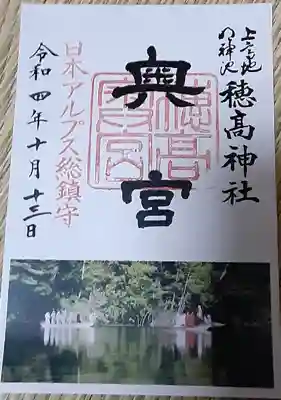 上高地
明神池
穂髙神社
奥宮
穂髙
奥宮
日本アルプス総鎮守
令和四年十月十三日